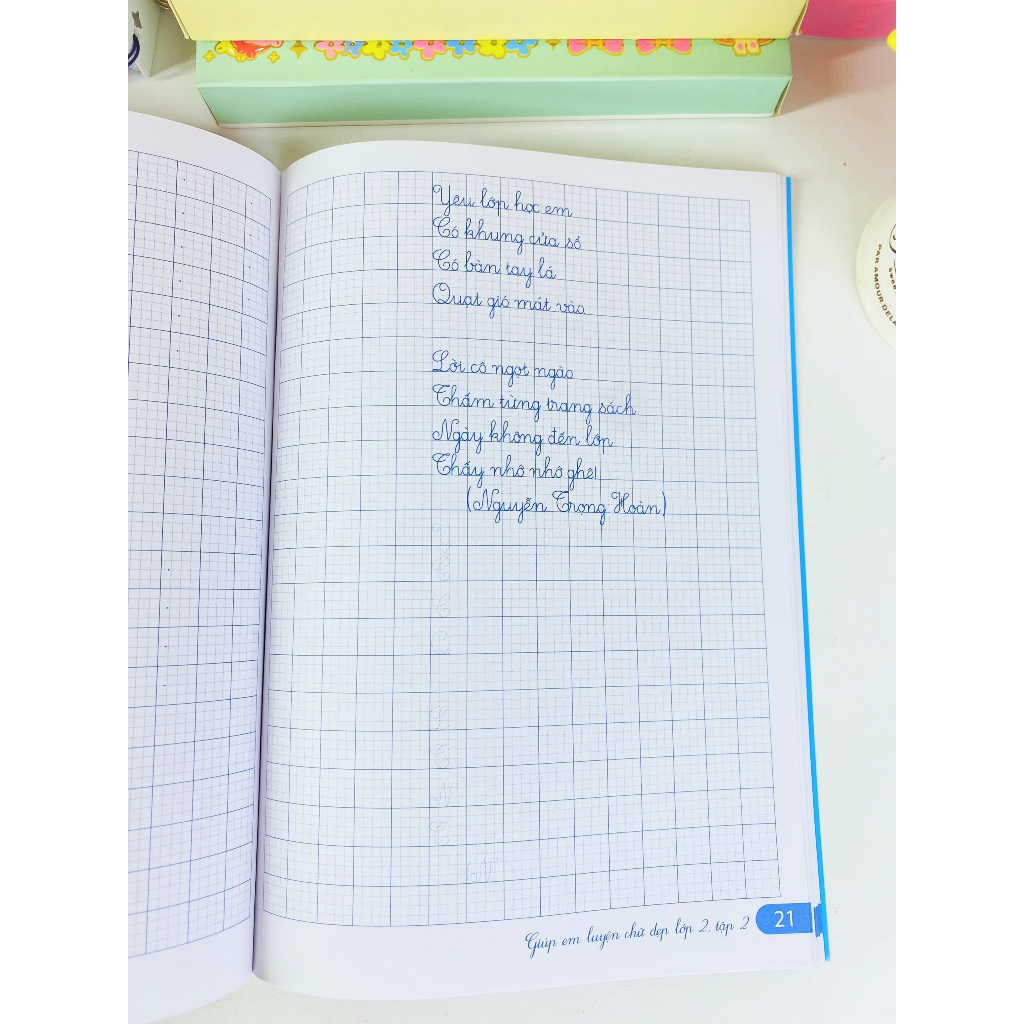 Yêu lớp học em
Có khung cửa sổ
Có bàn tay lá
Quạt gió mát vào
Lời cô ngọt ngào
Thấm từng trang sách
Ngày không đến lớp
Thấy nhớ nhớ ghê!
(Nguyễn Trọng Hoàn)
Giúp em luyện chữ đẹp lớp 2, tập 2
21
PAR AMOUR